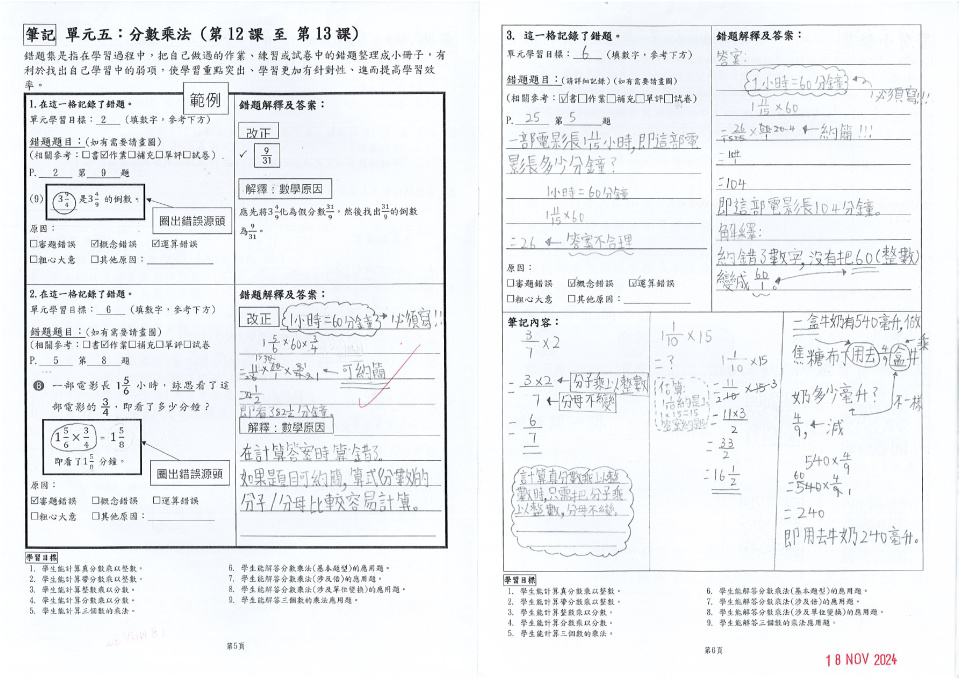 筆記 單元五：分數乘法（第12課 至 第13課）
錯題集是指在學習過程中，把自己做過的作業、練習或試卷中的錯題整理成小冊子，有
利於找出自己學習中的弱項，使學習重點突出、學習更加有針對性、進而提高學習效
率。
範例
1.在這一格記錄了錯題。
單元學習目標： 2 （填數字，參考下方）
錯題題目：(如有需要請畫圖)
(相關參考：□書☑作業□補充□單評□試卷)
P. 2 第 9 題
(9) 3 9/4 是3 4/9 的倒數。
圈出錯誤源頭
原因：
□審題錯誤 ☑概念錯誤 ☑運算錯誤
□粗心大意 □其他原因：
錯題解釋及答案：
改正
✓ 9/31
解釋：數學原因
應先將3 4/9化為假分數31/9，然後找出31/9的倒數
為9/31。
2.在這一格記錄了錯題。
單元學習目標： 6 （填數字，參考下方）
錯題題目：(如有需要請畫圖)
(相關參考：□書☑作業□補充□單評□試卷
P. 5 第 8 題
⑧ 一部電影長 1 5/6 小時，詠思看了這
部電影的 3/4，即看了多少分鐘？
1 5/6 × 3/4 = 1 5/8
即看了1 5/8 分鐘。
圈出錯誤源頭
原因：
☑審題錯誤 □概念錯誤 □運算錯誤
□粗心大意 □其他原因：
錯題解釋及答案：
改正 1小時=60分鐘 必須寫!!
1 5/6 ×60× 3/4
可約簡
解釋：數學原因
在計算答案時算錯了。
如果題目可約簡，算式分數的
分子/分母比較容易計算。
學習目標
1. 學生能計算真分數乘以整數。
2. 學生能計算帶分數乘以整數。
3. 學生能計算整數乘以分數。
4. 學生能計算分數乘以分數。
5. 學生能計算三個數的乘法。
6. 學生能解答分數乘法(基本題型)的應用題。
7. 學生能解答分數乘法(涉及倍)的應用題。
8. 學生能解答分數乘法(涉及單位變換)的應用題。
9. 學生能解答三個數的乘法應用題。
第5頁
3. 這一格記錄了錯題。
單元學習目標： 6 （填數字，參考下方）
錯題題目：(請詳細記錄)(如有需要請畫圖)
(相關參考：☑書□作業□補充□單評□試卷)
P. 25 第 5 題
一部電影長1 11/15小時，即這部電
影長多少分鐘？
1小時=60分鐘
1 11/15 ×60
=26 ← 答案不合理
原因：
□審題錯誤 ☑概念錯誤 ☑運算錯誤
□粗心大意 □其他原因：
錯題解釋及答案：
答案：
1小時=60分鐘 必須寫!!!
1 11/15 ×60
約簡!!!
=104
即這部電影長104分鐘。
解釋：
約錯了數字，沒有把60(整數)
變成 60/1。
筆記內容：
3/7 ×2
= 3×2/7 分子乘以整數
分母不變
= 6/7
計算真分數乘以整
數時，只需把分子乘
以整數，分母不變。
1 1/10 ×15
=?
1 1/10 ×15
= 11×3/2
= 33/2
=16 1/2
一盒牛奶有540毫升，做
焦糖布丁用去4/9盒牛
奶多少毫升？
不一樣
540× 4/9
=240
即用去牛奶240毫升。
學習目標
1. 學生能計算真分數乘以整數。
2. 學生能計算帶分數乘以整數。
3. 學生能計算整數乘以分數。
4. 學生能計算分數乘以分數。
5. 學生能計算三個數的乘法。
6. 學生能解答分數乘法(基本題型)的應用題。
7. 學生能解答分數乘法(涉及倍)的應用題。
8. 學生能解答分數乘法(涉及單位變換)的應用題。
9. 學生能解答三個數的乘法應用題。
第6頁
18 NOV 2024